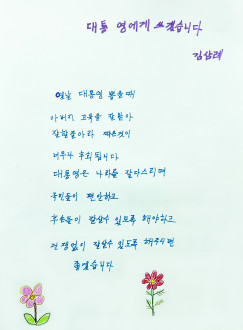 대통 영에게 쓰겠습니다
김삼례
옛날 대통영 뽑을때
아버지 고육을 잘 받아
잘할줄아라 찍은것이
너무나 후회됩니다
대통영은 나라를 잘 다스리며
국민들이 편안하고
후손들이 잘살수 있도록 해야하고
전쟁없이 잘살수 있도록 해주시면
좋겠습니다